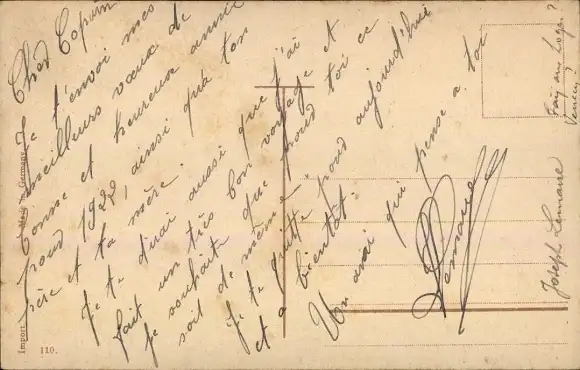 Cher Copain
Je t'envoi mes
meilleurs vœux de
bonne et heureuse année
pour 1922, ainsi qu'a ton
père et ta mère.
Je te dirai aussi que j'ai
fait un très bon voyage et
je souhaite que pour toi ce
soit de même.
Je te quitte pour aujourd'hui
et a bientôt.
Un ami qui pense a toi
Lemaire
Joseph Lemaire
Import
Made in Germany
110.